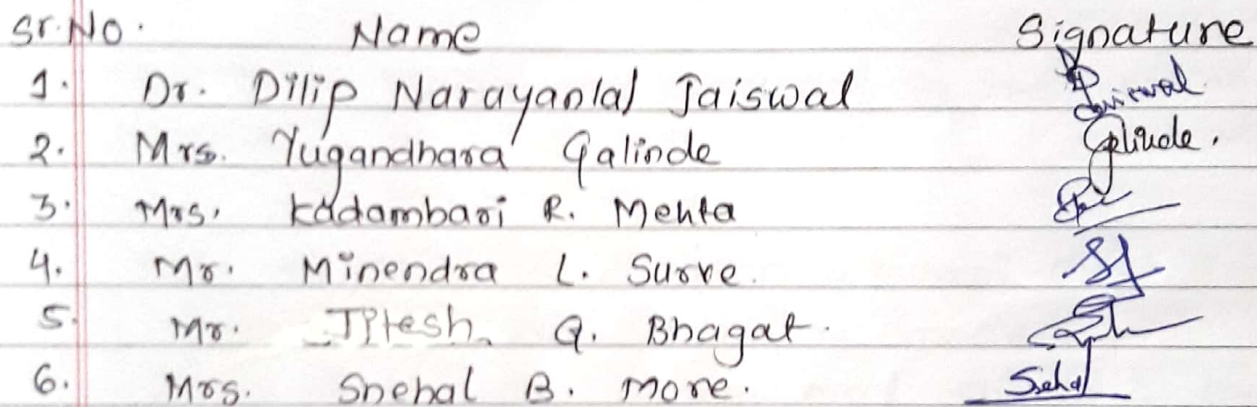 Sr. No. Name Signature
1. Dr. Dilip Narayanlal Jaiswal Jaiswal
2. Mrs. Yugandhara Galinde Galinde.
3. Mrs. Kadambari R. Mehta
4. Mr. Minendra L. Surve.
5. Mr. Jitesh G. Bhagat.
6. Mrs. Snehal B. More. Snehal